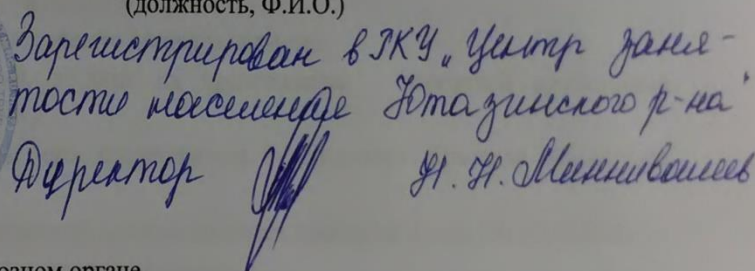 (должность, Ф.И.О.)
Зарегистрирован в ГКУ „Центр заня-
тости населения Ютазинского р-на"
Директор Н. Н. Миннивалиев
озном органе